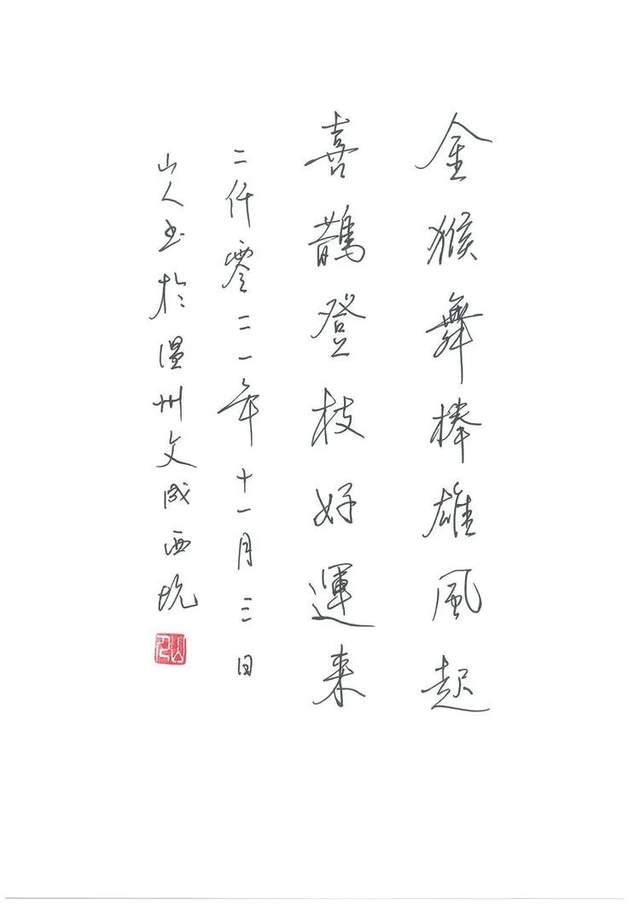 金猴舞棒雄風起
喜鵲登枝好運来
二仟零二一年十一月三日
山人书於温州文成西坑